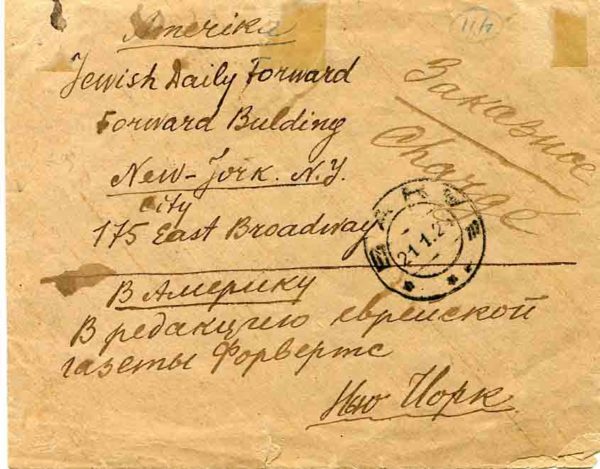 Amerika
114
Jewish Daily Forward
Forward Bulding
New-York. N.Y.
City
175 East Broadway
Заказное
Chargé
21.1.2
В Америку
В редакцию еврейской
газеты Форвертс
Нью Йорк